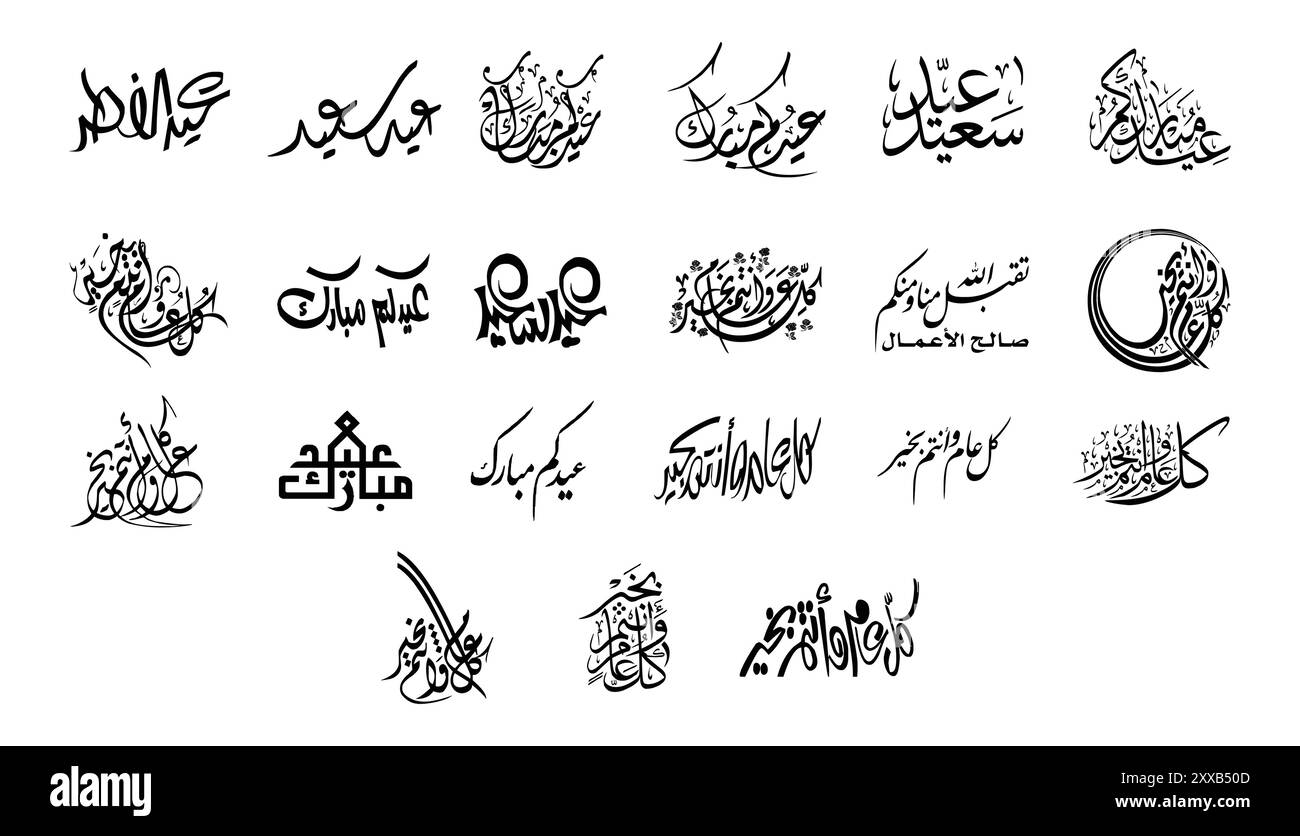 عيد الفطر
عيد سعيد
عيدكم مبارك
عيدكم مبارك
عيد سعيد
عيد مبارككم
كل عام وأنتم بخير
عيدكم مبارك
عيد سعيد
كل عام وأنتم بخير
تقبل الله
منا ومنكم
صالح الأعمال
كل عام وأنتم بخير
كل عام وأنتم بخير
عيد
مبارك
عيدكم مبارك
كل عام وأنتم بخير
كل عام وأنتم بخير
كل عام وأنتم بخير
كل عام وأنتم بخير
كل عام وأنتم بخير
كل عام وأنتم بخير
alamy
Image ID: 2XXB50D
www.alamy.com